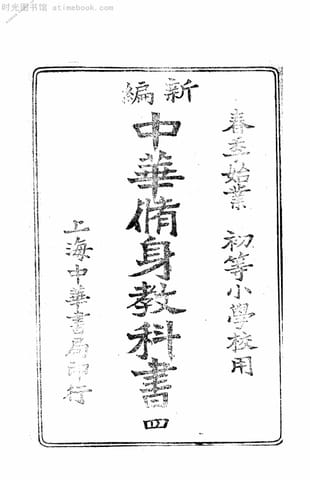 时光图书馆 atimebook.com
新編
春季始業 初等小學校用
中華脩身教科書 四
上海中華書局印行